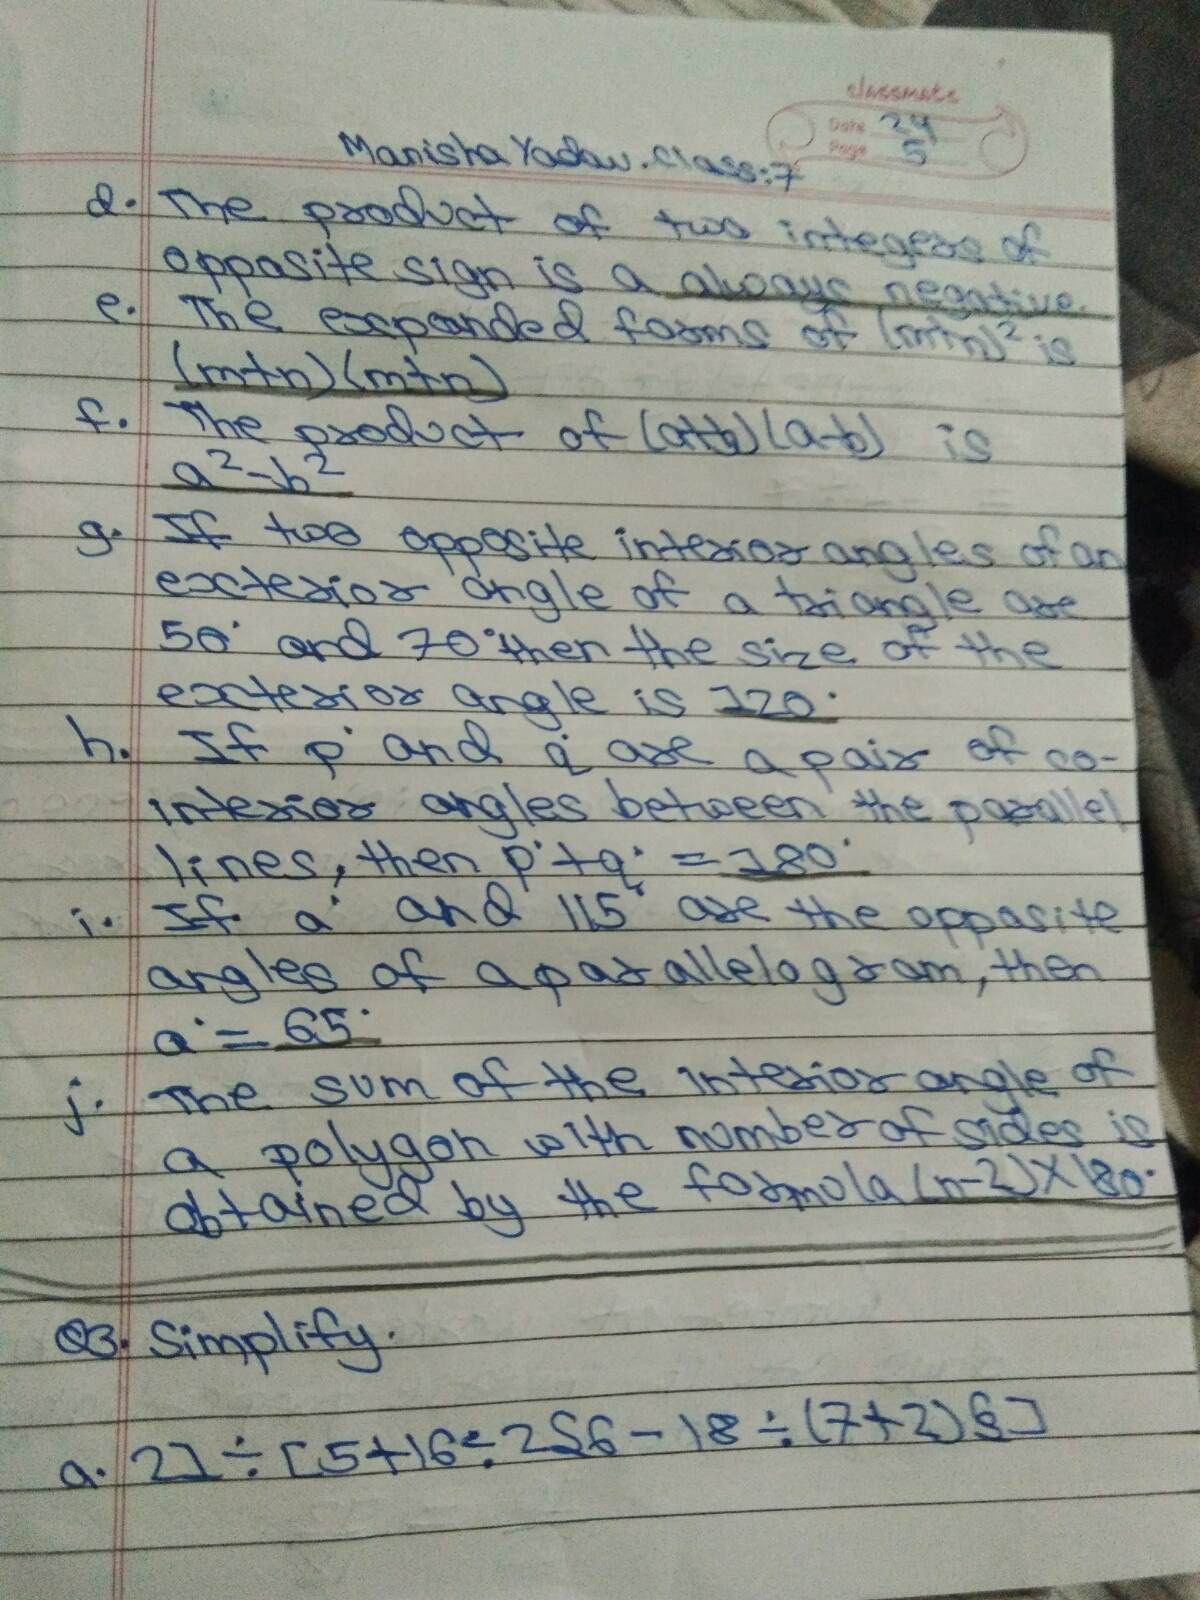 classmate
Date 24
Page 5
Manisha Yadav. Class:7
d. The product of two integers of
opposite sign is a always negative.
e. The expanded forms of (m+n)² is
(m+n)(m+n)
f. The product of (a+b)(a-b) is
a²-b²
g. If two opposite interior angles of an
exterior angle of a triangle are
50° and 70° then the size of the
exterior angle is 120°
h. If p° and q° are a pair of co-
interior angles between the parallel
lines, then p°+q° = 180°
i. If a° and 115° are the opposite
angles of a parallelogram, then
a° = 65°
j. The sum of the interior angle of
a polygon with number of sides is
obtained by the formula (n-2)×180°
Q3. Simplify.
a. 21 ÷ [5+16÷2{6-18÷(7+2)}]